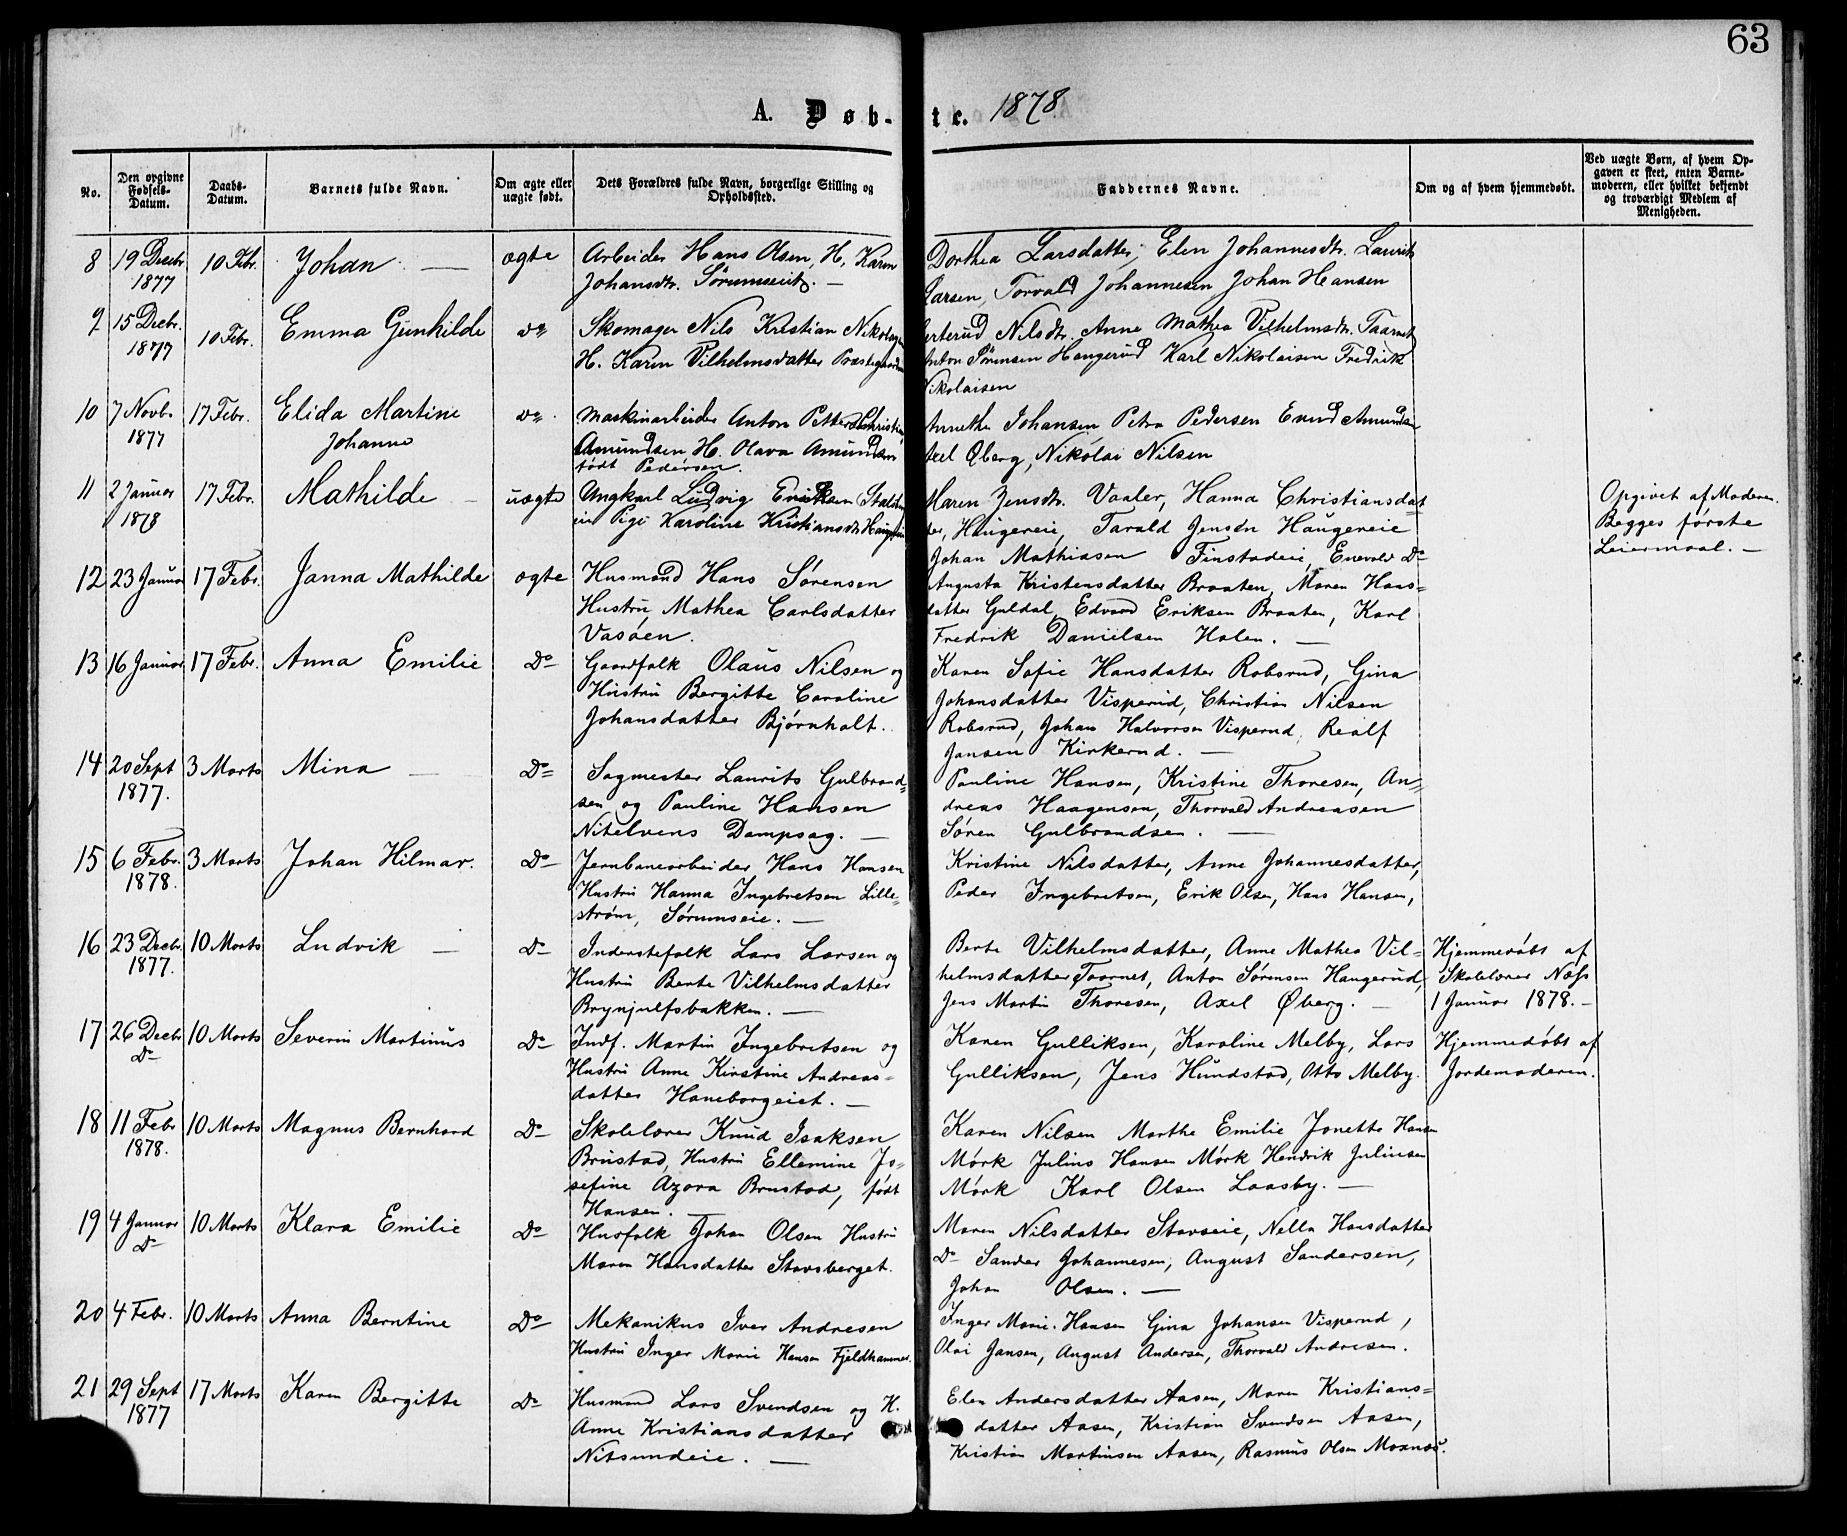 63
A. Døb-
te. 1878.
No.
Den opgivne Fødsels-Datum.
Daabs-Datum.
Barnets fulde Navn.
Om ægte eller uægte født.
Dets Forældres fulde Navn, borgerlige Stilling og Opholdssted.
Faddernes Navne.
Om og af hvem hjemmedøbt.
Ved uægte Børn, af hvem Op-
gaven er skeet, enten Barne-
moderen, eller hvilket bekjendt
og troværdigt Medlem af
Menigheden.
8 19 Decbr. 1877 10 Febr. Johan — ægte
Arbeider Hans Olsen, H. Karen
Johansdtr. Sørumseie. —
Dorthea Larsdatter, Elen Johannesdtr. Laurits
Larsen, Torvald Johannesen Johan Hansen
9 15 Decbr. 1877 10 Febr. Emma Gunhilde do
Skomager Nils Kristian Nikolaisen
H. Karen Vilhelmsdatter Præstegaarden
Nilsdtr. Anne Mathea Vilhelmsdtr. Taarnet
Anton Sørensen Haugerud Karl Nikolaisen Fredrik
Nikolaisen
10 7 Novbr. 1877 17 Febr. Elida Martine
Johanne do
Maskinarbeider Anton Petter
Amundsen H. Olava Amundsen
født Pedersen.
Annethe Johansen Petra Pedersen Amundsen
Axel Øberg, Nikolai Nilsen
11 2 Januar 1878 17 Febr. Mathilde — uægte
Ungkarl Ludvig Eriksen
Pige Karoline Kristiansdtr.
Maren Jensdtr. Vaaler, Hanna Christiansdat-
ter, Haugereie, Tarald Jensen Haugereie
Johan Mathiasen Finstadeie, Enevald Do
Opgivet af Moderen.
Begges første
Leiermaal. —
12 23 Januar 17 Febr. Janna Mathilde ægte
Husmand Hans Sørensen
Hustru, Mathea Carlsdatter
Vasøen.
Augusta Kristensdatter Braaten, Maren Hans-
datter Guldal, Edvard Eriksen Braaten, Karl
Fredrik Danielsen Holen. —
13 16 Januar 17 Febr. Anna Emilie Do
Gaardfolk Olaus Nilsen og
Hustru Bergitte Caroline
Johansdatter Bjørnholt.
Karen Sofie Hansdatter Robsrud, Gina
Johansdatter Visperud, Christian Nilsen
Robsrud, Johan Halvorsen Visperud, Realf
Jansen Kirkerud. —
14 20 Sept 1877. 3 Marts Mina — Do
Sagmester Laurits Gulbrand-
sen og Pauline Hansen
Nitelvens Dampsag. —
Pauline Hansen, Kristine Thoresen, An-
dreas Haagensen, Thorvald Andreasen
Søren Gulbrandsen. —
15 6 Febr. 1878. 3 Marts Johan Hilmar. Do
Jernbanearbeider Hans Hansen
Hustru Hanna Ingebretsen Lille-
strøm, Sørumseie. —
Kristine Nilsdatter, Anne Johannesdatter,
Peder Ingebretsen, Erik Olsen, Hans Hansen,
16 23 Decbr. 1877. 10 Marts Ludvik — Do
Inderstefolk Lars Larsen og
Hustru Berte Vilhelmsdatter
Brynjulfsbakken. —
Berte Vilhelmsdatter, Anne Mathea Vil-
helmsdatter Taarnet, Anton Sørensen Haugerud,
Jens Martin Thoresen, Axel Øberg. —
Hjemmedøbt af
Skolelærer Næss
1 Januar 1878. —
17 26 Decbr Do 10 Marts Severin Martinus Do
Indf. Martin Ingebretsen og
Hustru Anne Kirstine Andreas-
datter Haneborgeiet. —
Karen Gulliksen, Karoline Melby, Lars
Gulliksen, Jens Hundstad, Otto Melby.
Hjemmedøbt af
Jordemoderen.
18 11 Febr 1878. 10 Marts Magnus Bernhard Do
Skolelærer Knud Isaksen
Brustad, Hustru Ellemine Jo-
sefine Azora Brustad, født
Hansen. —
Karen Nilsen Marthe Emilie Jonette Hansen
Mørk Julius Hansen Mørk Hendrik Juliusen
Mørk Karl Olsen Laasby. —
19 4 Januar Do 10 Marts Klara Emilie Do
Husfolk Johan Olsen Hustru
Maren Hansdatter Stavsberget.
Maren Nilsdatter Stavseie, Nella Hansdatter
Do Sander Johannesen, August Sandersen,
Johan Olsen. —
20 4 Febr. 10 Marts Anna Berntine Do
Mekanikus Iver Andresen
Hustru Inger Marie Hansen Fjeldhammer.
Inger Marie Hansen Gina Johansen Visperud,
Olai Jansen, August Andersen, Thorvald Andresen.
21 29 Sept 1877 17 Marts Karen Bergitte Do
Husmand Lars Svendsen og H.
Anne Kristiansdatter
Nitsundeie. —
Elen Andersdatter Aasen, Maren Kristians-
datter Aasen, Kristian Svendsen Aasen,
Kristian Martinsen Aasen, Rasmus Olsen Moxnæs.